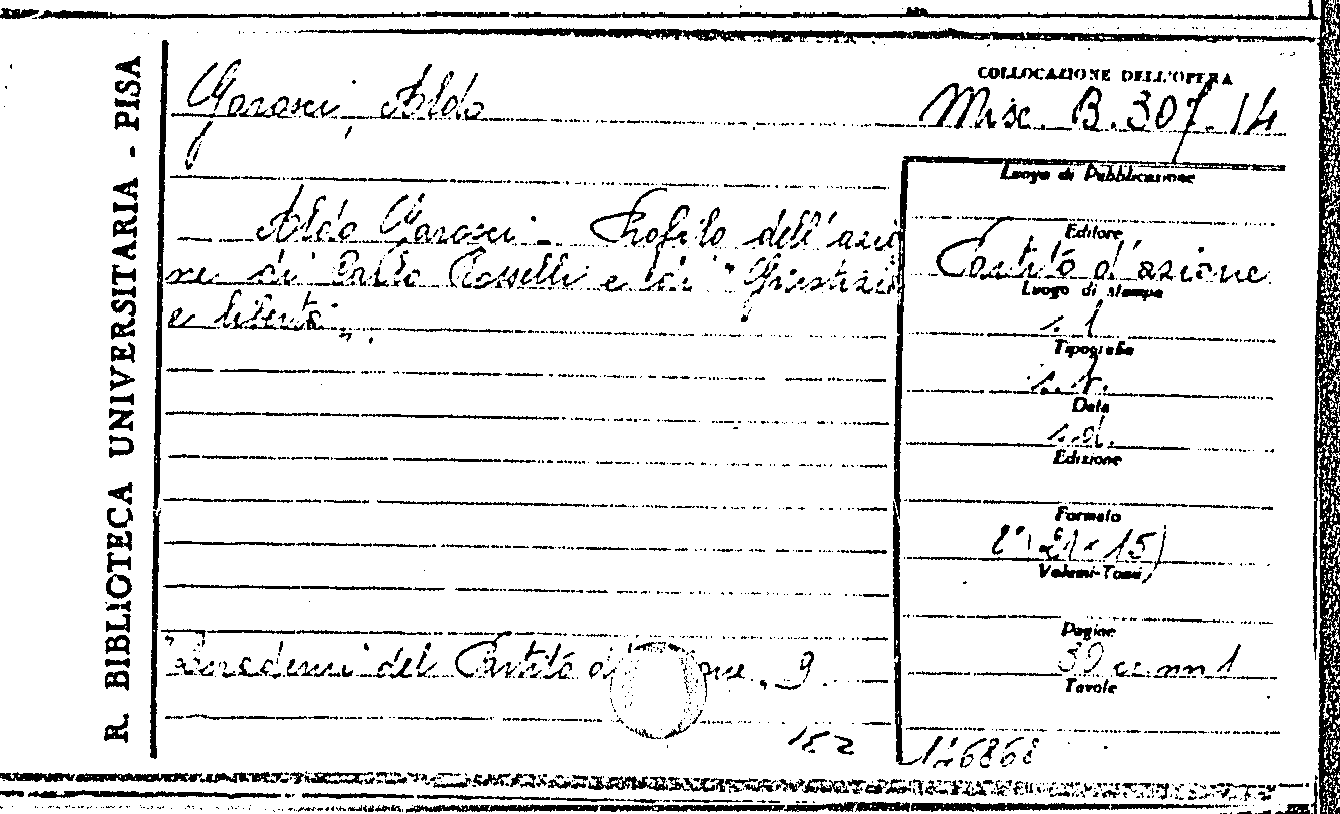 R. BIBLIOTECA UNIVERSITARIA - PISA
Garosci, Aldo
COLLOCAZIONE DELL'OPERA
Misc. B. 307. 14
Aldo Garosci - Profilo dell'azio
ne di Carlo Rosselli e di "Giustizia
e libertà".
Luogo di Pubblicazione
Editore
Partito d'azione
Luogo di stampa
s. l.
Tipografia
s. t.
Data
s. d.
Edizione
Formato
8° (21 x 15)
Volumi-Tomi
Pagine
39 cc. nn 1
Tavole
"Quaderni del Partito d' 9
126868